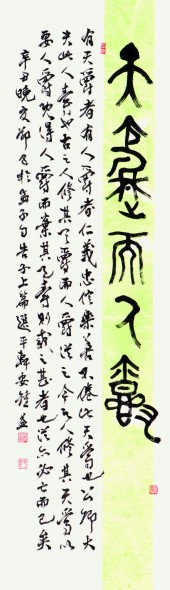 天爵而人爵
有天爵者有人爵者仁義忠信樂善不倦此天爵也公卿大
夫此人爵也古之人修其天爵而人爵從之今之人修其天爵以
要人爵既得人爵而棄其天爵則惑之甚者也終亦必亡而已矣
辛丑晚夏節孟子句告子上篇選平軒安